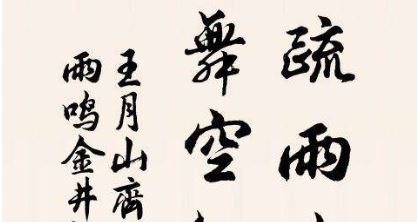 疏雨
舞空
王月山齊
雨鳴金井